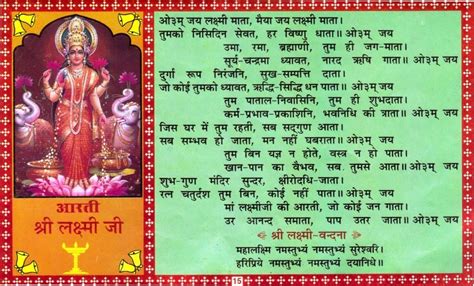 ओ३म् जय लक्ष्मी माता, मैया जय लक्ष्मी माता।
तुमको निसिदिन सेवत, हर विष्णु धाता॥ ओ३म् जय
उमा, रमा, ब्रह्माणी, तुम ही जग-माता।
सूर्य-चन्द्रमा ध्यावत, नारद ऋषि गाता॥ ओ३म् जय
दुर्गा रूप निरंजनि, सुख-सम्पत्ति दाता।
जो कोई तुमको ध्यावत, ऋद्धि-सिद्धि धन पाता॥ ओ३म् जय
तुम पाताल-निवासिनि, तुम ही शुभदाता।
कर्म-प्रभाव-प्रकाशिनि, भवनिधि की त्राता॥ ओ३म् जय
जिस घर में तुम रहती, सब सद्गुण आता।
सब सम्भव हो जाता, मन नहीं घबराता॥ ओ३म् जय
तुम बिन यज्ञ न होते, वस्त्र न हो पाता।
खान-पान का वैभव, सब तुमसे आता॥ ओ३म् जय
शुभ-गुण मंदिर सुन्दर, क्षीरोदधि-जाता।
रत्न चतुर्दश तुम बिन, कोई नहीं पाता॥ ओ३म् जय
मां लक्ष्मीजी की आरती, जो कोई जन गाता।
उर आनन्द समाता, पाप उतर जाता॥ ओ३म् जय
श्री लक्ष्मी-वन्दना
महालक्ष्मि नमस्तुभ्यं नमस्तुभ्यं सुरेश्वरि।
हरिप्रिये नमस्तुभ्यं नमस्तुभ्यं दयानिधे॥
आरती
श्री लक्ष्मी जी
15